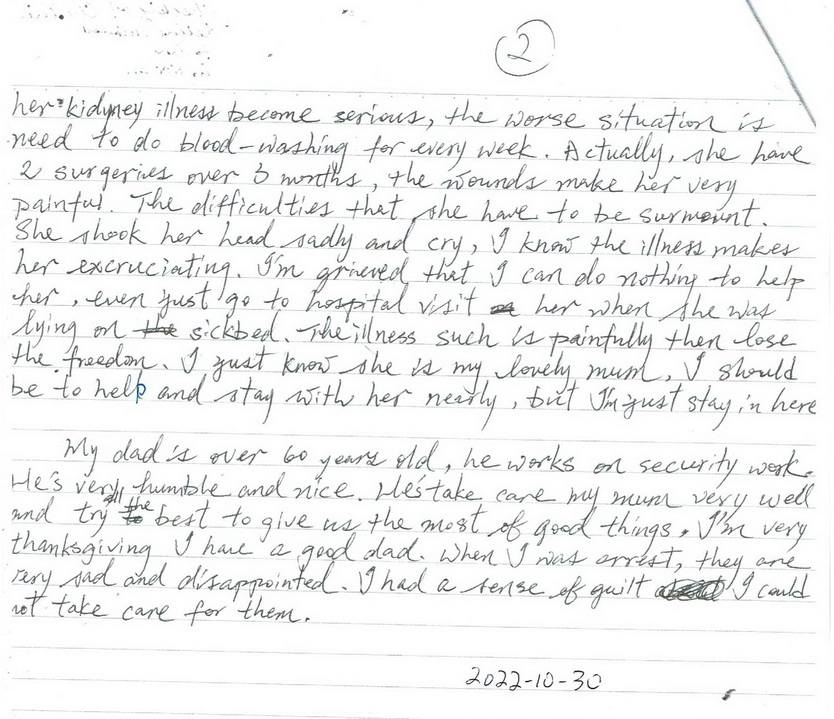 2
her kidyney illness become serious, the worse situation is
need to do blood-washing for every week. Actually, she have
2 surgeries over 3 months, the wounds make her very
painful. The difficulties that she have to be surmount.
She shook her head sadly and cry, I know the illness makes
her excruciating. I'm grieved that I can do nothing to help
her, even just go to hospital visit her when she was
lying on sickbed. The illness such is painfully then lose
the freedom. I just know she is my lovely mum, I should
be to help and stay with her nearly, but I'm just stay in here
My dad is over 60 years old, he works on security work.
He's very humble and nice. He's take care my mum very well
and try all the best to give us the most of good things. I'm very
thanksgiving I have a good dad. When I was arrest, they are
very sad and disappointed. I had a sense of guilt I could
not take care for them.
2022-10-30